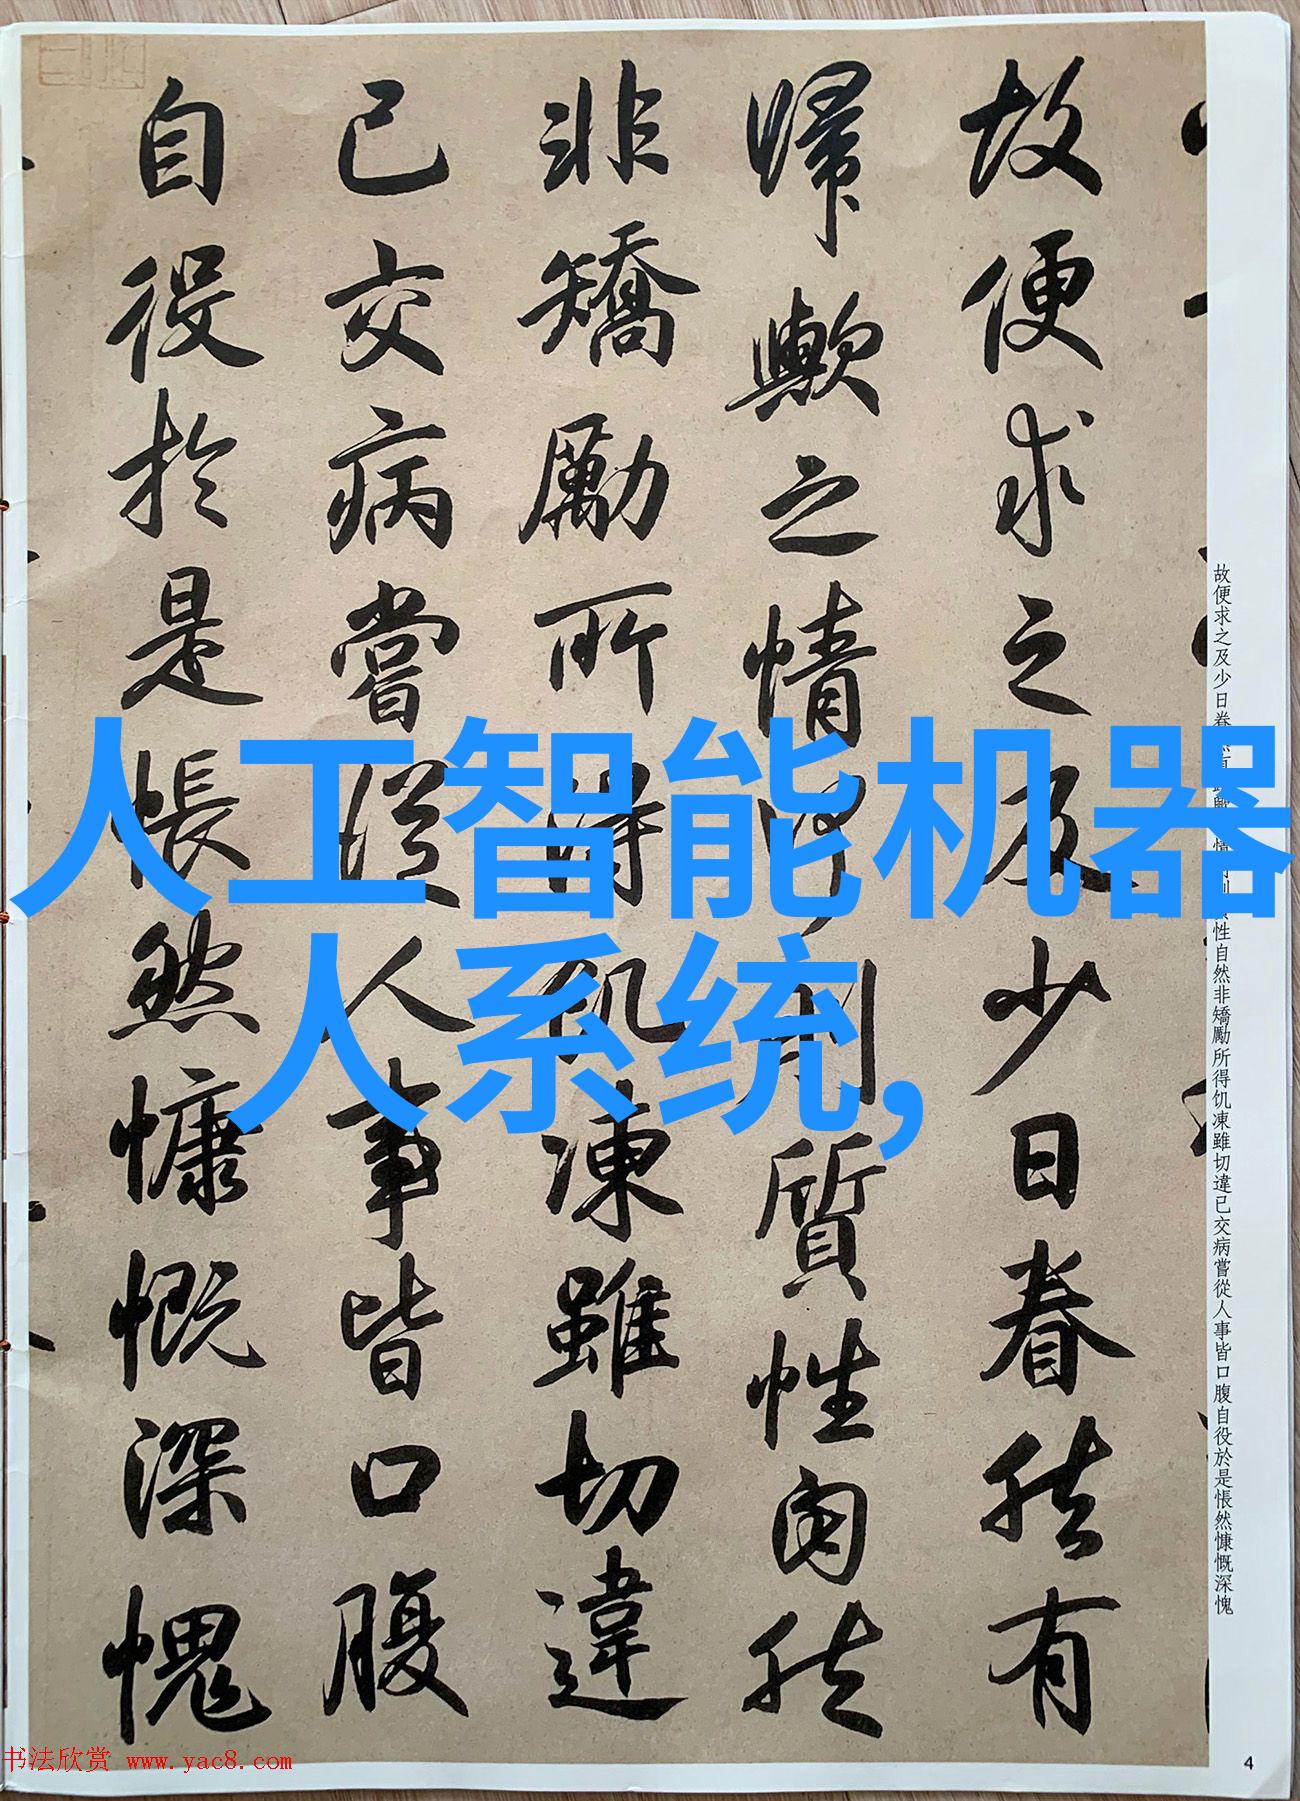 故便求之及少日眷然有
歸歟之情何則質性自然
非矯勵所得飢凍雖切違
已交病嘗從人事皆口腹
自役於是悵然慷慨深愧
人工智能机器
人系统,
故便求之及少日眷 情 性自然非矯勵所得饥凍雖切違已交病嘗從人事皆口腹自役於是悵然慷慨深愧
书法欣赏 www.yac8.com
4